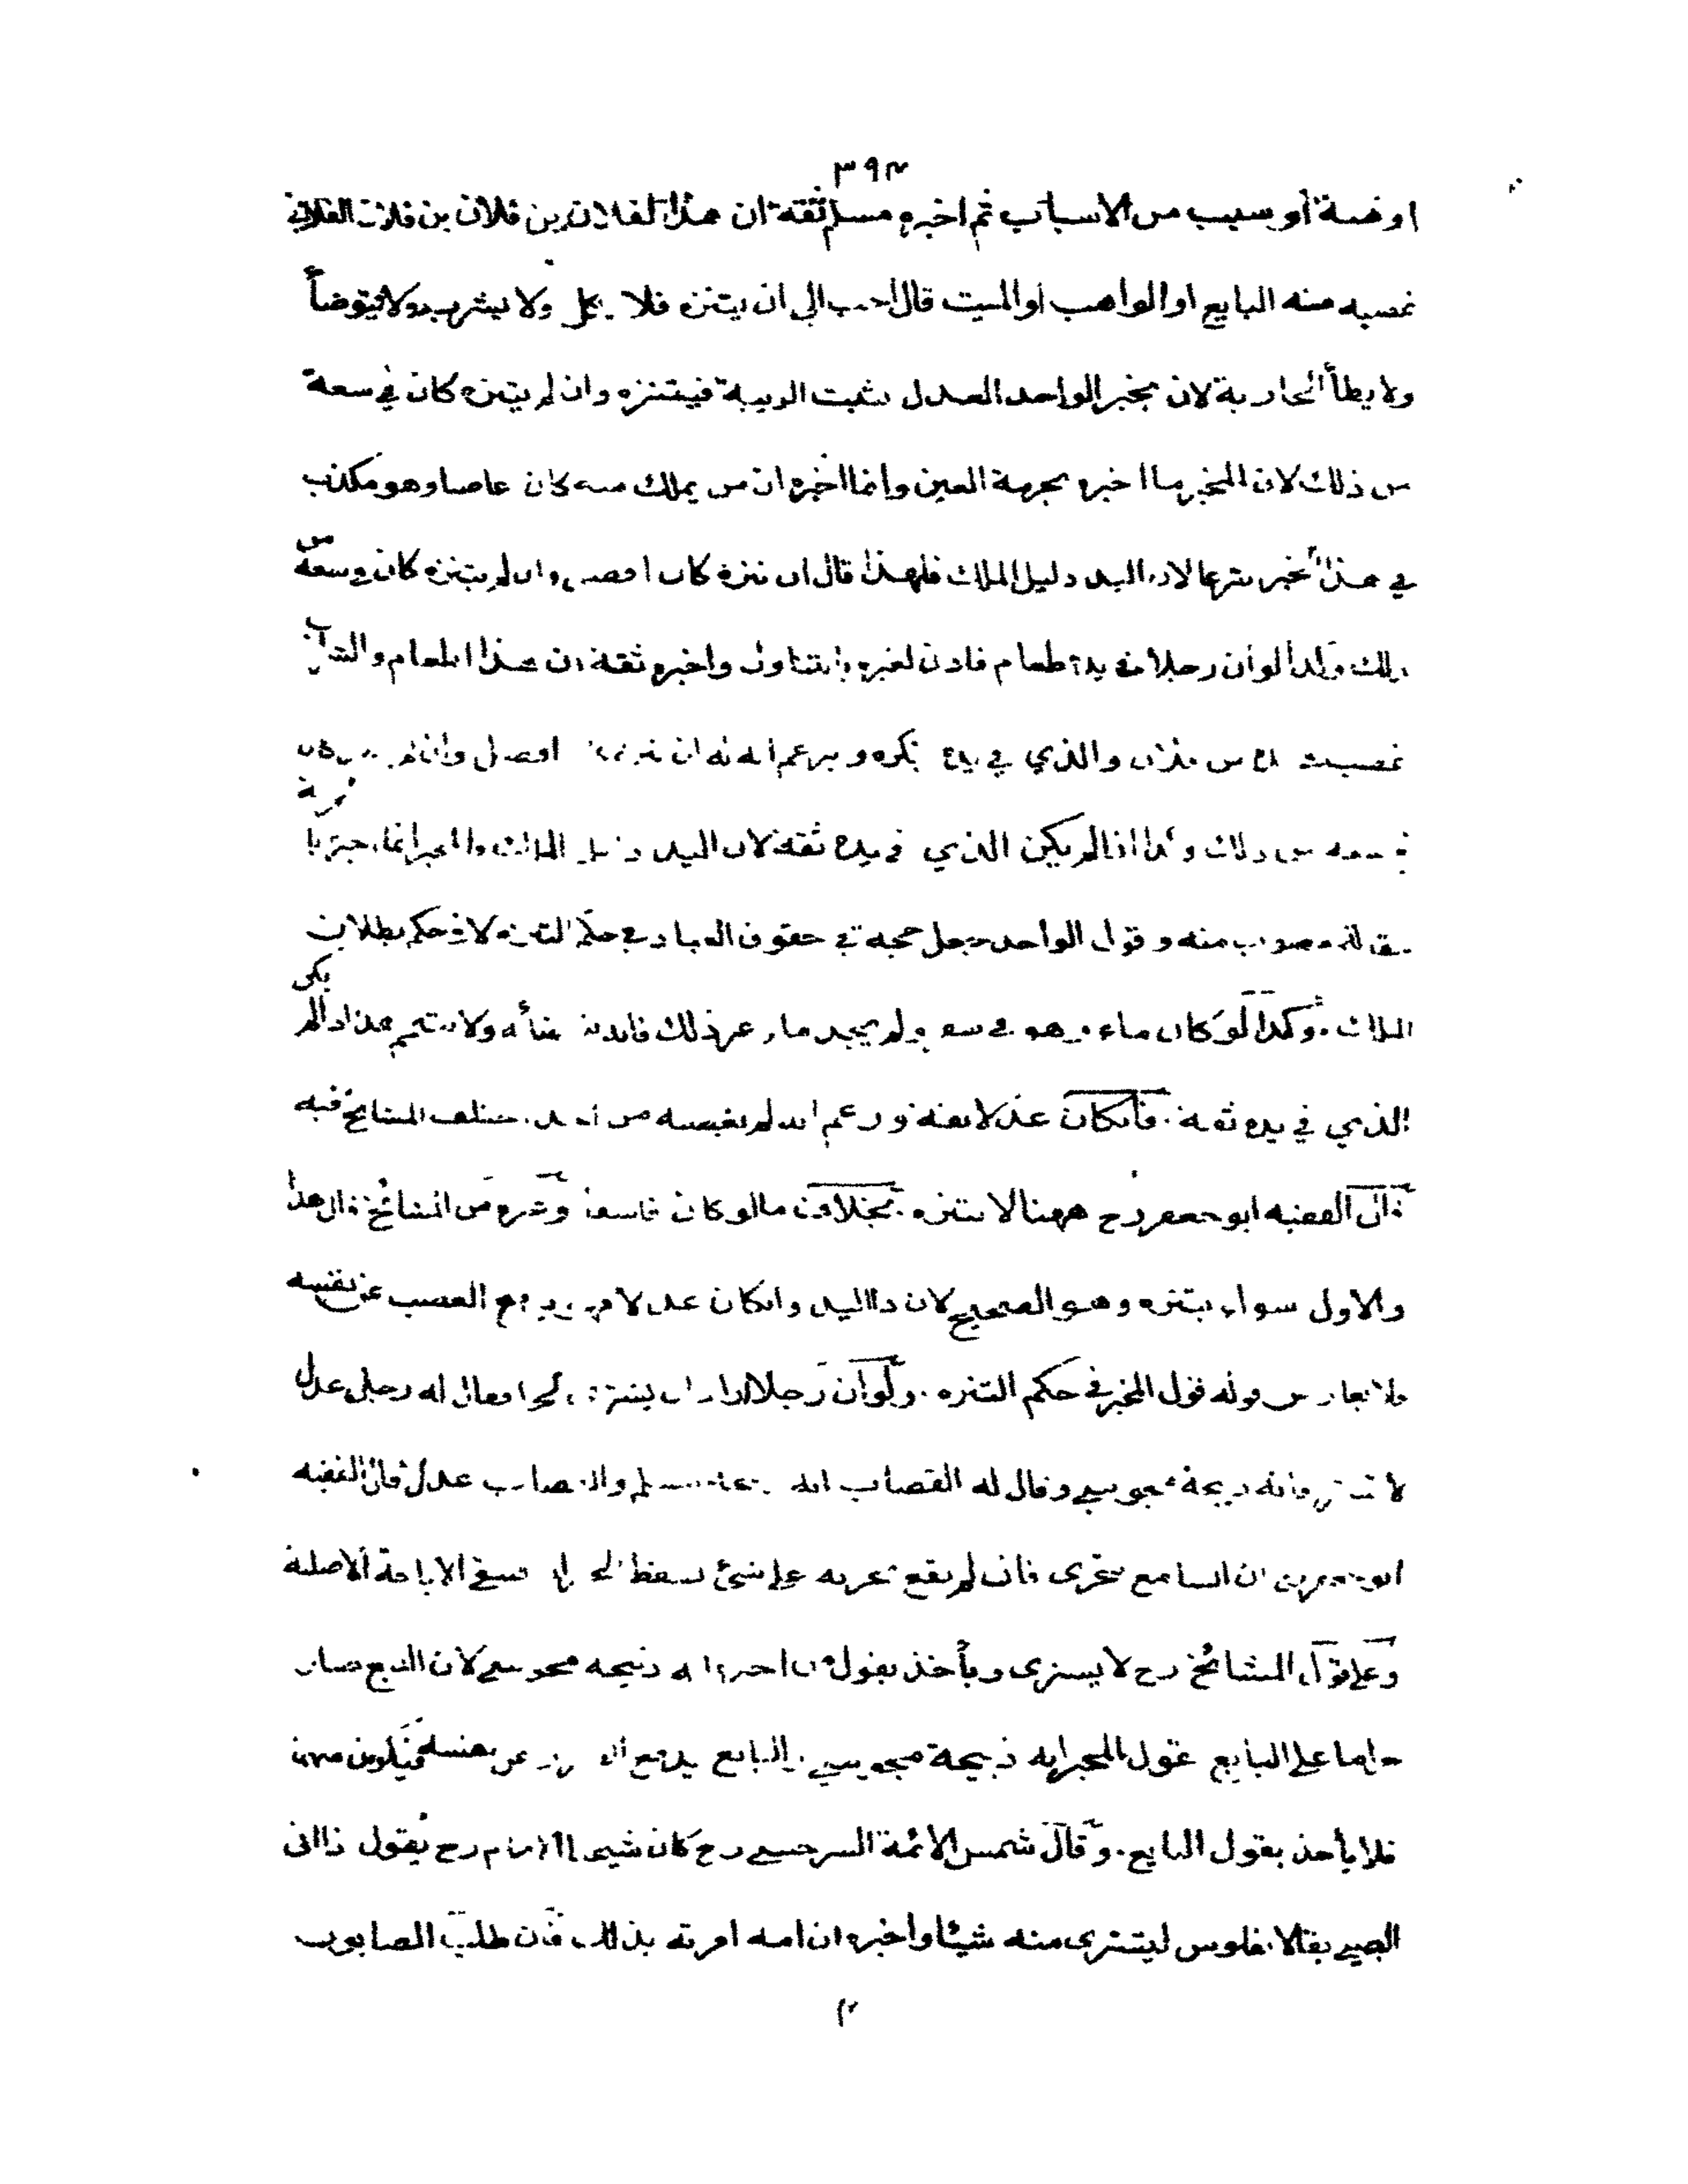 ٣٩٣
او هبة أو سبب من الاسباب ثم اخبره مسلم ثقة ان هذا لفلان بن فلان بن فلان الفلاني
غصبه منه البايع او الواهب او الميت قال احب الي ان يتنزه فلا يأكل ولا يشرب ولا يتوضأ
ولا يطأ الجارية لان بخبر الواحد العدل يثبت الريبة فيتنزه وان لم يتنزه كان في سعة
من ذلك لان المخبر ما اخبره بحرمة العين وانما اخبره ان من يملك منه كان غاصبا وهو مكذب
في هذا الخبر شرعا لان اليد دليل الملك فلهذا قال ان تنزه كان افضل وان لم يتنزه كان في سعة من
ذلك وكذا لو أن رجلا في يده طعام فاذن لغيره بالتناول واخبره ثقة ان هذا الطعام والشراب
غصب من فلان والذي في يده ينكره ويزعم انه له ان تنزه افضل وان لم
في سعة من ذلك وكذا اذا لم يكن الذي في يده ثقة لان اليد دليل الملك والمخبر انما
منه وقول الواحد جعل حجة في حقوق العباد في حكم التنزه لا في حكم بطلان
الملك . وكذا لو كان ماء وهو في سفر ولم يجد ماء غير ذلك فانه يتوضأ به ولا يتيمم هذا اذا لم يكن
الذي في يده ثقة . فان كان عدلا ثقة وزعم انه لم يغصبه من احد اختلف المشايخ فيه
قال الفقيه ابو جعفر رح ههنا لا يتنزه بخلاف ما لو كان فاسقا وغيره من المشائخ قال هذا
والاول سواء يتنزه وهو الصحيح لان ذا اليد وان كان عدلا يدفع الغصب عن نفسه
فلا يعارض قوله قول المخبر في حكم التنزه . ولو أن رجلا اراد ان يشتري لحما فقال له رجل عدل
لا تشتر فانه ذبيحة مجوسي وقال له القصاب انه ذبيحة مسلم والقصاب عدل قال الفقيه
ابو جعفر ان السامع يتحرى فان لم يقع تحريه على شئ سقط الخبران فبقي الاباحة الاصلية
وعلى قول المشائخ رح لا يشتري ويأخذ بقول من اخبره انه ذبيحة مجوسي لان البيع صار
حراما على البايع بقول المخبر انه ذبيحة مجوسي والبايع يدفع عن نفسه فيكون متهما
فلا يأخذ بقول البايع . وقال شمس الائمة السرخسي رح كان شيخنا الامام رح يقول اذا اتى
الصبي بقالا بفلوس ليشترى منه شيئا واخبره ان امه امرته بذلك فان طلب الصابون